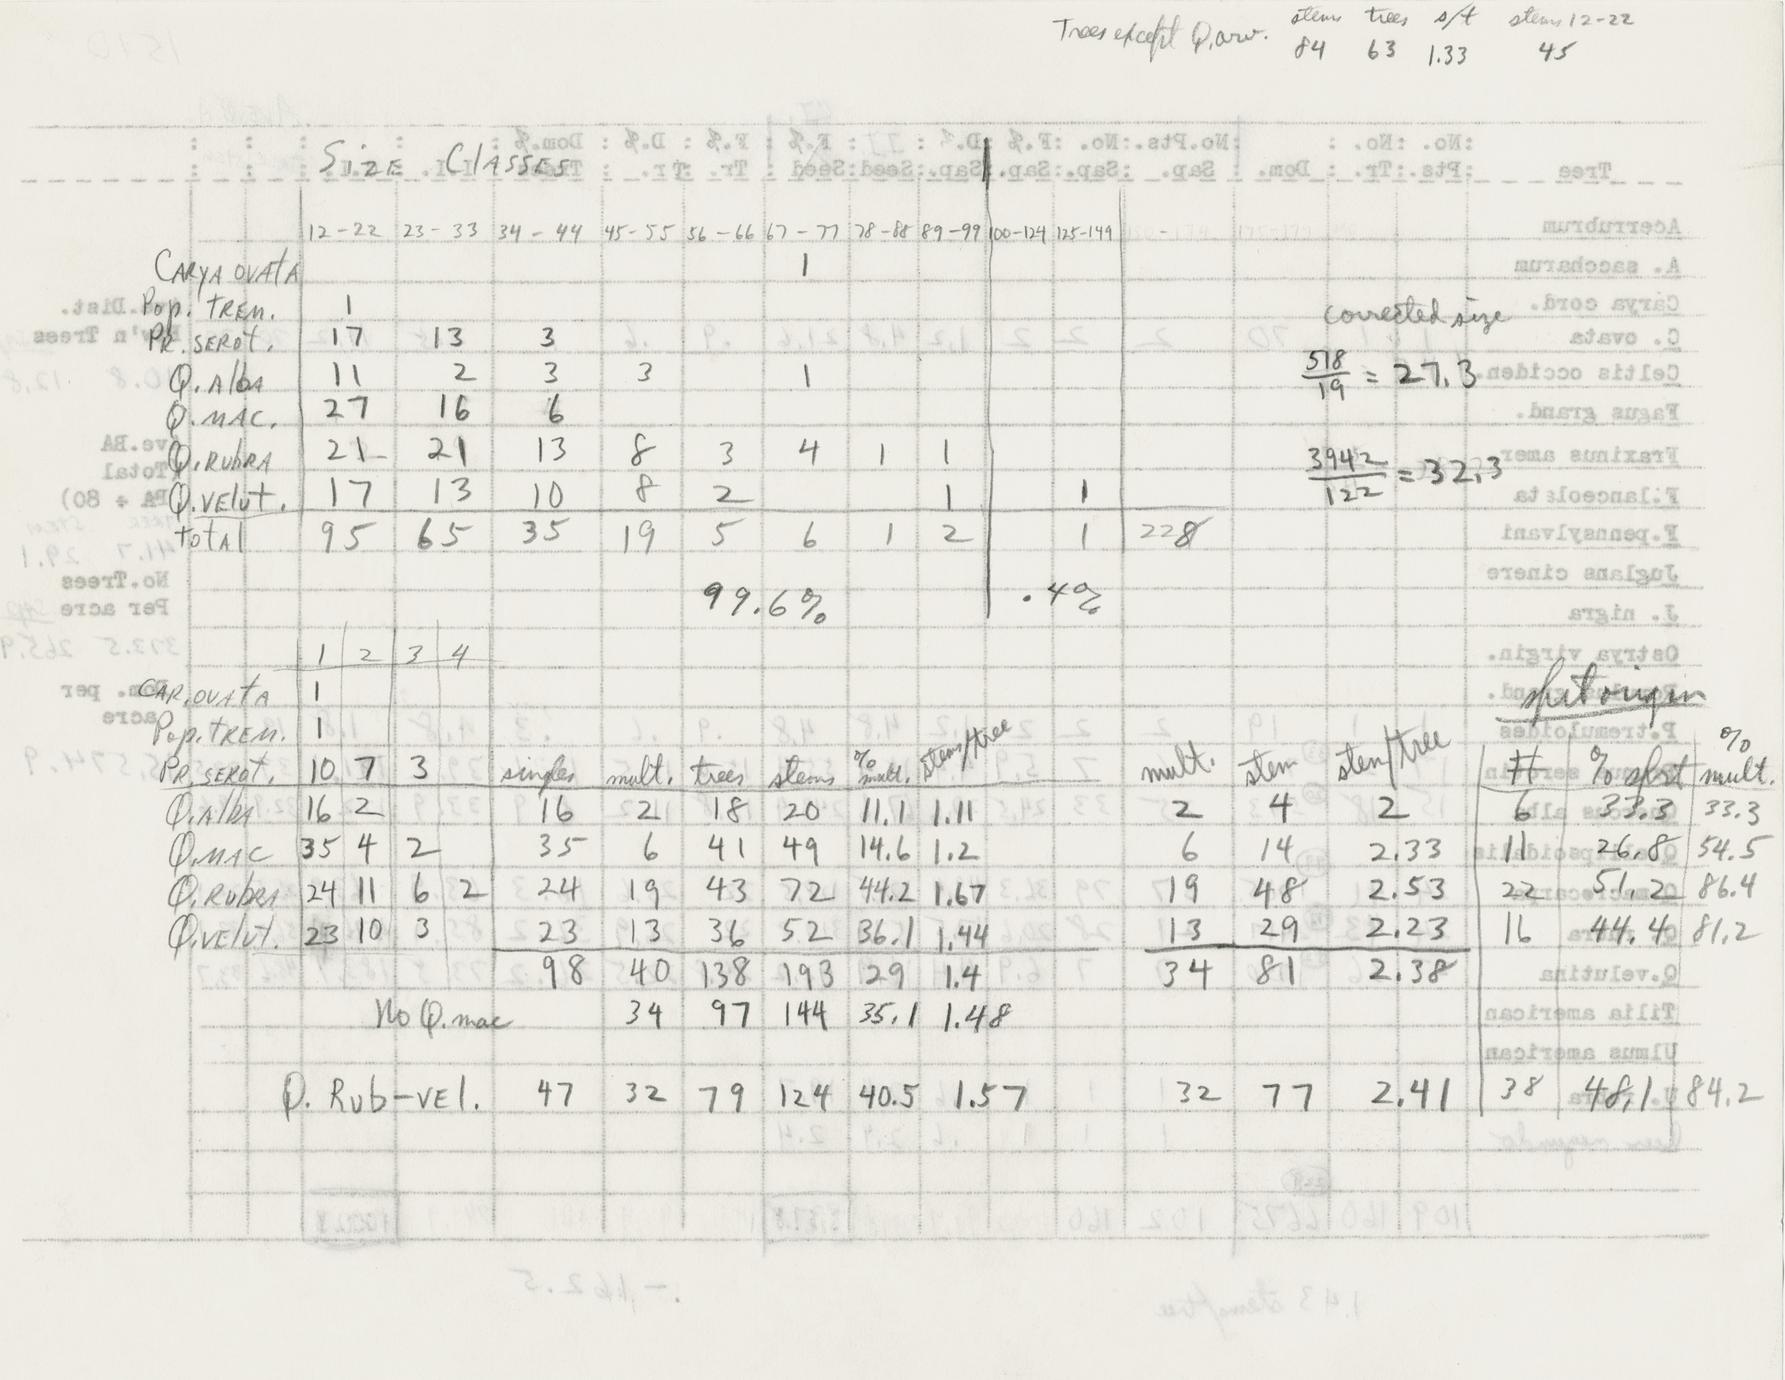 stems trees s/t stems 12-22
Trees except Q. arv. 84 63 1.33 45
Size Classes
12-22 23-33 34-44 45-55 56-66 67-77 78-88 89-99 100-124 125-149
CARYA OVATA 1
Pop. TREM. 1
PR. SEROT. 17 13 3
corrected size
Q. Alba 11 2 3 3 1
518/19 = 27.3
Q. MAC. 27 16 6
Q. RUBRA 21 21 13 8 3 4 1 1
3942/122 = 32.3
Q. VELUT. 17 13 10 8 2 1 1
TOTAL 95 65 35 19 5 6 1 2 1 228
99.6% .4%
1 2 3 4
CAR. OVATA 1
sprt origin
Pop. TREM. 1
PR. SEROT. 10 7 3 singles mult. trees stems % mult. stems/tree mult. stem stem/tree # % sprt % mult.
Q. Alba 16 2 16 2 18 20 11.1 1.11 2 4 2 6 33.3 33.3
Q. MAC 35 4 2 35 6 41 49 14.6 1.2 6 14 2.33 11 26.8 54.5
Q. RUBRA 24 11 6 2 24 19 43 72 44.2 1.67 19 48 2.53 22 51.2 86.4
Q. VELUT. 23 10 3 23 13 36 52 36.1 1.44 13 29 2.23 16 44.4 81.2
98 40 138 193 29 1.4 34 81 2.38
No Q. mac 34 97 144 35.1 1.48
Q. Rub-vel. 47 32 79 124 40.5 1.57 32 77 2.41 38 48.1 84.2